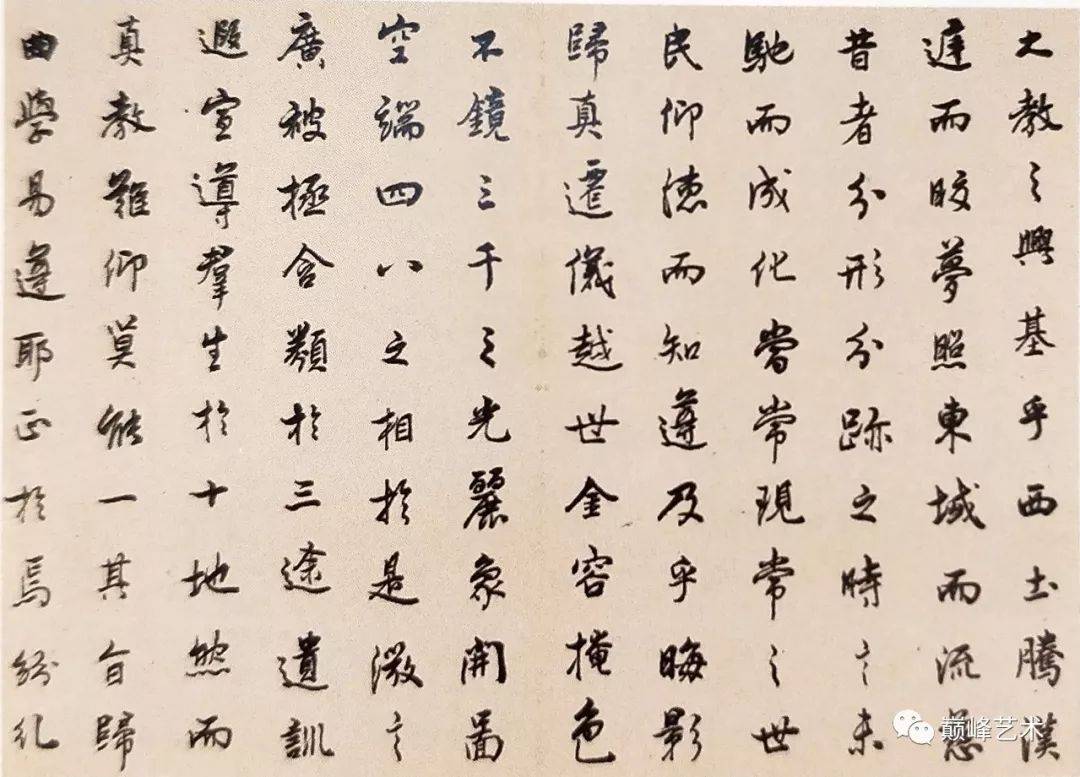 大教之興基乎西土騰漢
庭而皎夢照東域而流慈
昔者分形分跡之時言未
馳而成化當常現常之世
民仰德而知遵及乎晦影
歸真遷儀越世金容掩色
不鏡三千之光麗象開圖
空端四八之相於是微言
廣被極含類於三途遺訓
遐宣導羣生於十地然而
真教難仰莫能一其旨歸
曲學易遵耶正於焉紛糺
巅峰艺术